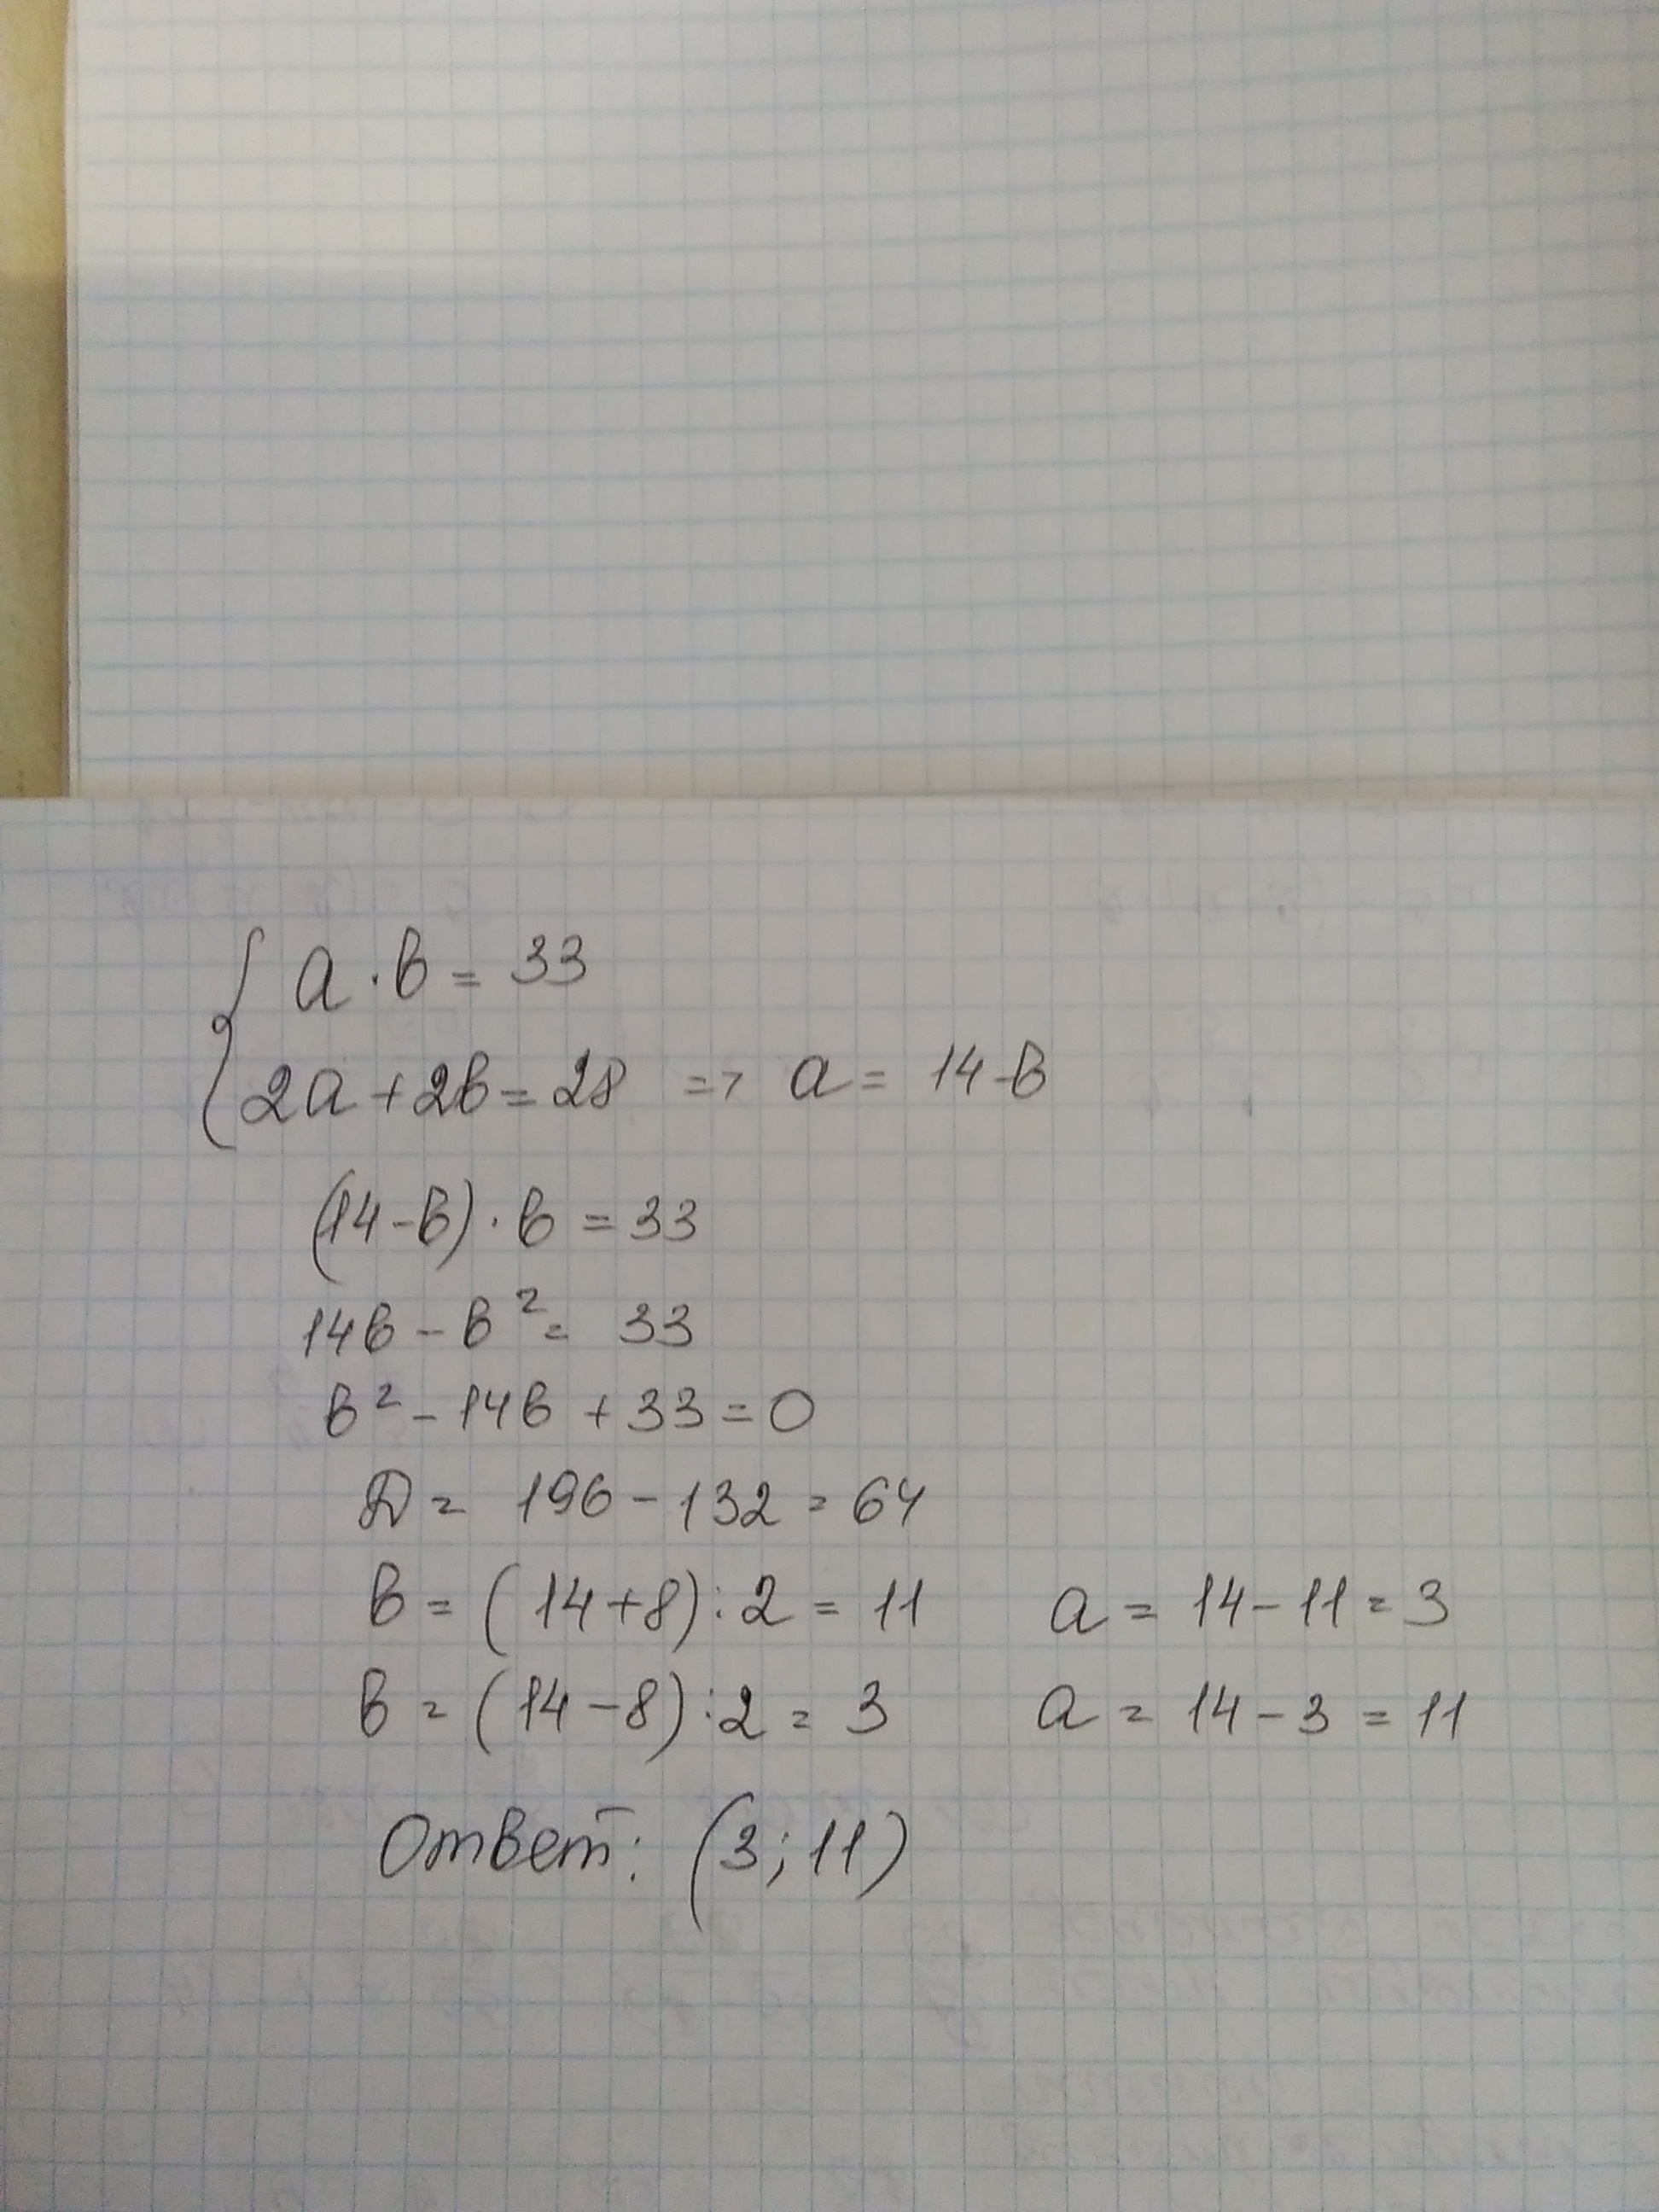 { a · в = 33
2a + 2в = 28 => a = 14 - в
(14 - в) · в = 33
14в - в² = 33
в² - 14в + 33 = 0
D = 196 - 132 = 64
в = (14 + 8) : 2 = 11 a = 14 - 11 = 3
в = (14 - 8) : 2 = 3 a = 14 - 3 = 11
Ответ: (3; 11)